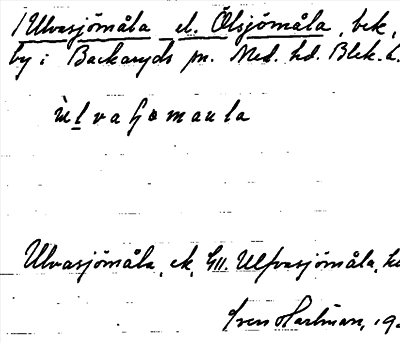 Ulvasjömåla el. Ölsjömåla, bek,
by i Backaryds sn. Med. hd. Blek. l.
ùlvaɧømaula
Ulvasjömåla, ek, GII. Ulfvasjömåla,
Sven Hartman, 19